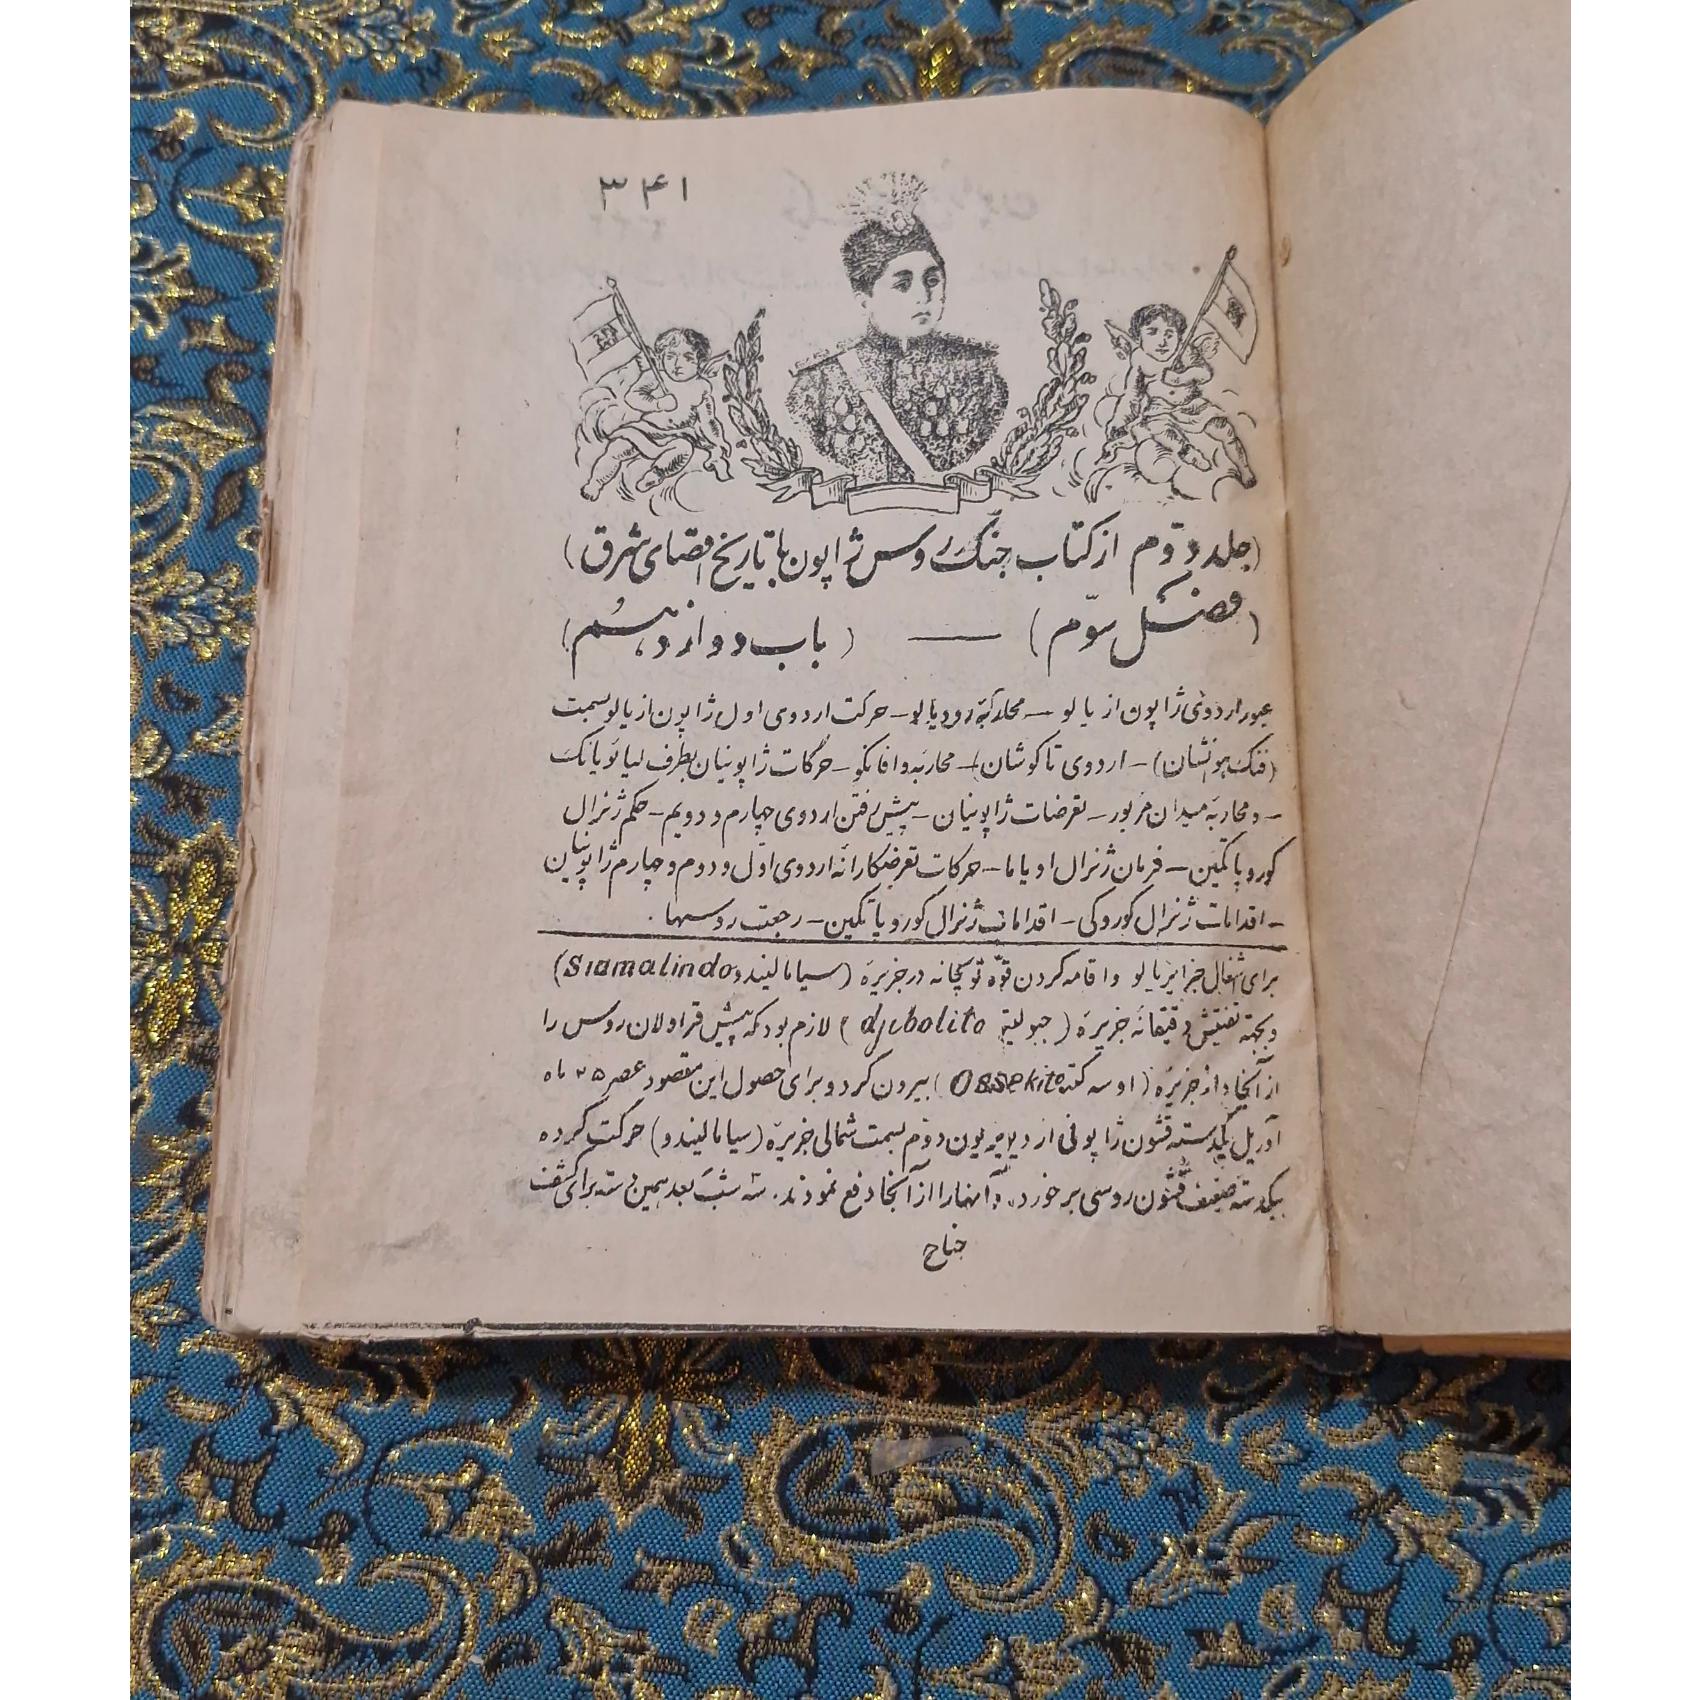 ۳۴۱
(جلد دوّم از کتاب جنگ روس ژاپون یا تاریخ اقصای شرق)
(فصل سوّم) — (باب دوازدهم)
عبور اردوی ژاپون از یالو — محاربه رود یالو — حرکت اردوی اول ژاپون از یالو بسمت
(فنک هوانشان) — اردوی تاکوشان) — محاربه وافانکو — حرکات ژاپونیان بطرف لیائویانک
— و محاربه میدان مزبور — تعرضات ژاپونیان — پیش رفتن اردوی چهارم و دویم — حکم ژنرال
کوروپاتکین — فرمان ژنرال اویاما — حرکات تعرضکارانه اردوی اوّل و دوم و چهارم ژاپونیان
— اقدامات ژنرال کوروکی — اقدامات ژنرال کوروپاتکین — رجعت روسها.
برای اشغال جزایر یالو و اقامه کردن قوّه توپخانه در جزیره (سیامالیندو Siamalindo)
و بجهته تفتیش دقیقانه جزیره (جبولیتو djebolito) لازم بود که پیش قراولان روس را
از آنجا و از جزیره (اوسه کتو Ossekito) بیرون کرد و برای حصول این مقصود عصر ۲۵ ماه
آوریل یکدسته قشون ژاپونی از دیویزیون دوّم بسمت شمالی جزیره (سیامالیندو) حرکت کرده
بیکدسته ضعیف قشون روسی برخورد، و آنهارا از آنجا دفع نمودند. سه شب بعد همین دسته برای کشف
جناح